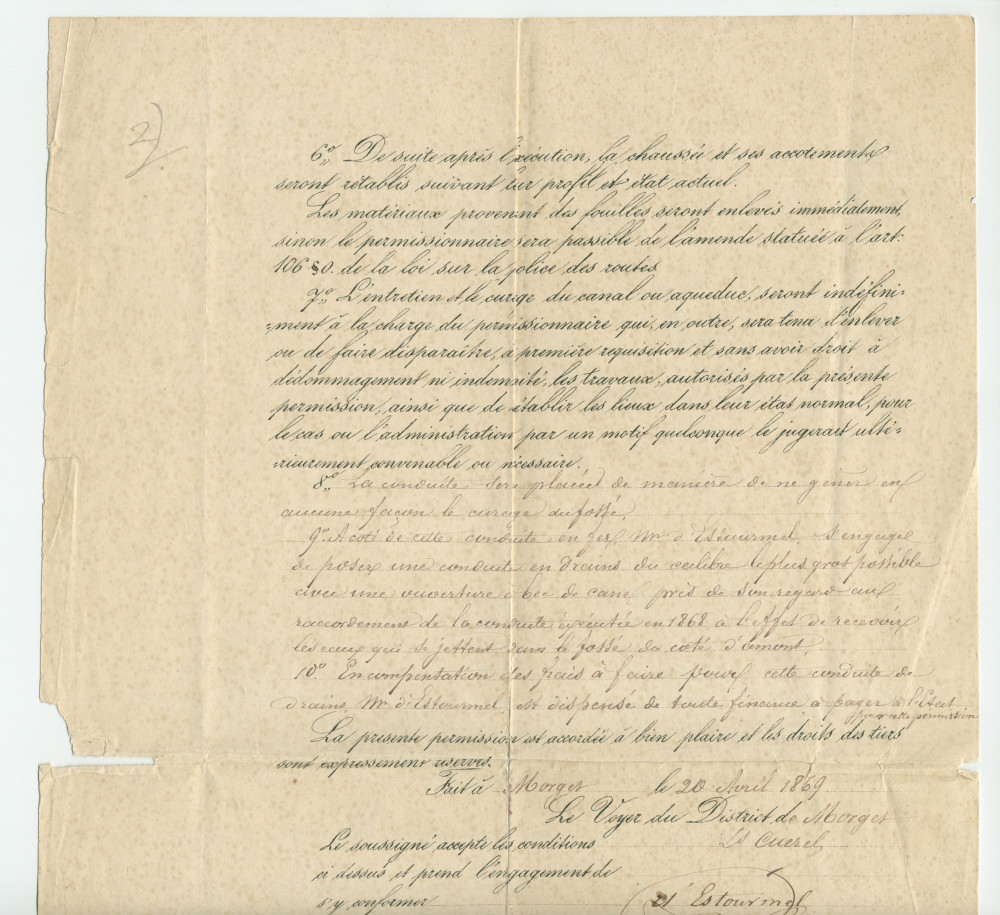 2)
6o,, De suite après l'exécution, la chaussée et ses accotements
seront rétablis suivant leur profil et état actuel.
Les matériaux provenant des fouilles seront enlevés immédiatement,
sinon le permissionnaire sera passible de l'amende statuée à l'art:
106 § de la loi sur la police des routes
7o,, L'entretien et le curage du canal ou aqueduc, seront indéfini-
-ment à la charge du permissionnaire qui, en outre, sera tenu d'enlever
ou de faire disparaître, à première requisition et sans avoir droit à
dédommagement ni indemnité, les travaux, autorisés par la présente
permission, ainsi que de établir les lieux dans leur état normal, pour
le cas ou l'administration par un motif quelconque le jugerait ulté-
-rieurement convenable ou nécessaire.
8o,, La conduite sera placée de manière de ne gêner en
aucune façon le curage du fossé.
9o A coté de cette conduite en fer, Mr d'Estourmel s'engage
de poser une conduite en drains du calibre le plus gros possible
avec une ouverture à bec de cane près de son regard au
raccordement de la conduite éxécutée en 1868 à l'effet de recevoir
les eaux qui se jettent dans le fossé du côté d'amont.
10o En compensation des frais à faire pour cette conduite de
drains, Mr d'Estourmel, est dispensé de toute finance à payer à l'Etat
pour cette permission
La presente permission est accordée à bien plaire et les droits des tiers
sont expressement reserves.
Fait à Morges le 20 Avril 1869
Le Voyer du District de Morges
Ls Cuerel
Le soussigné accepte les conditions
ci dessus et prend l'engagement de
s'y conformer
d'Estourmel